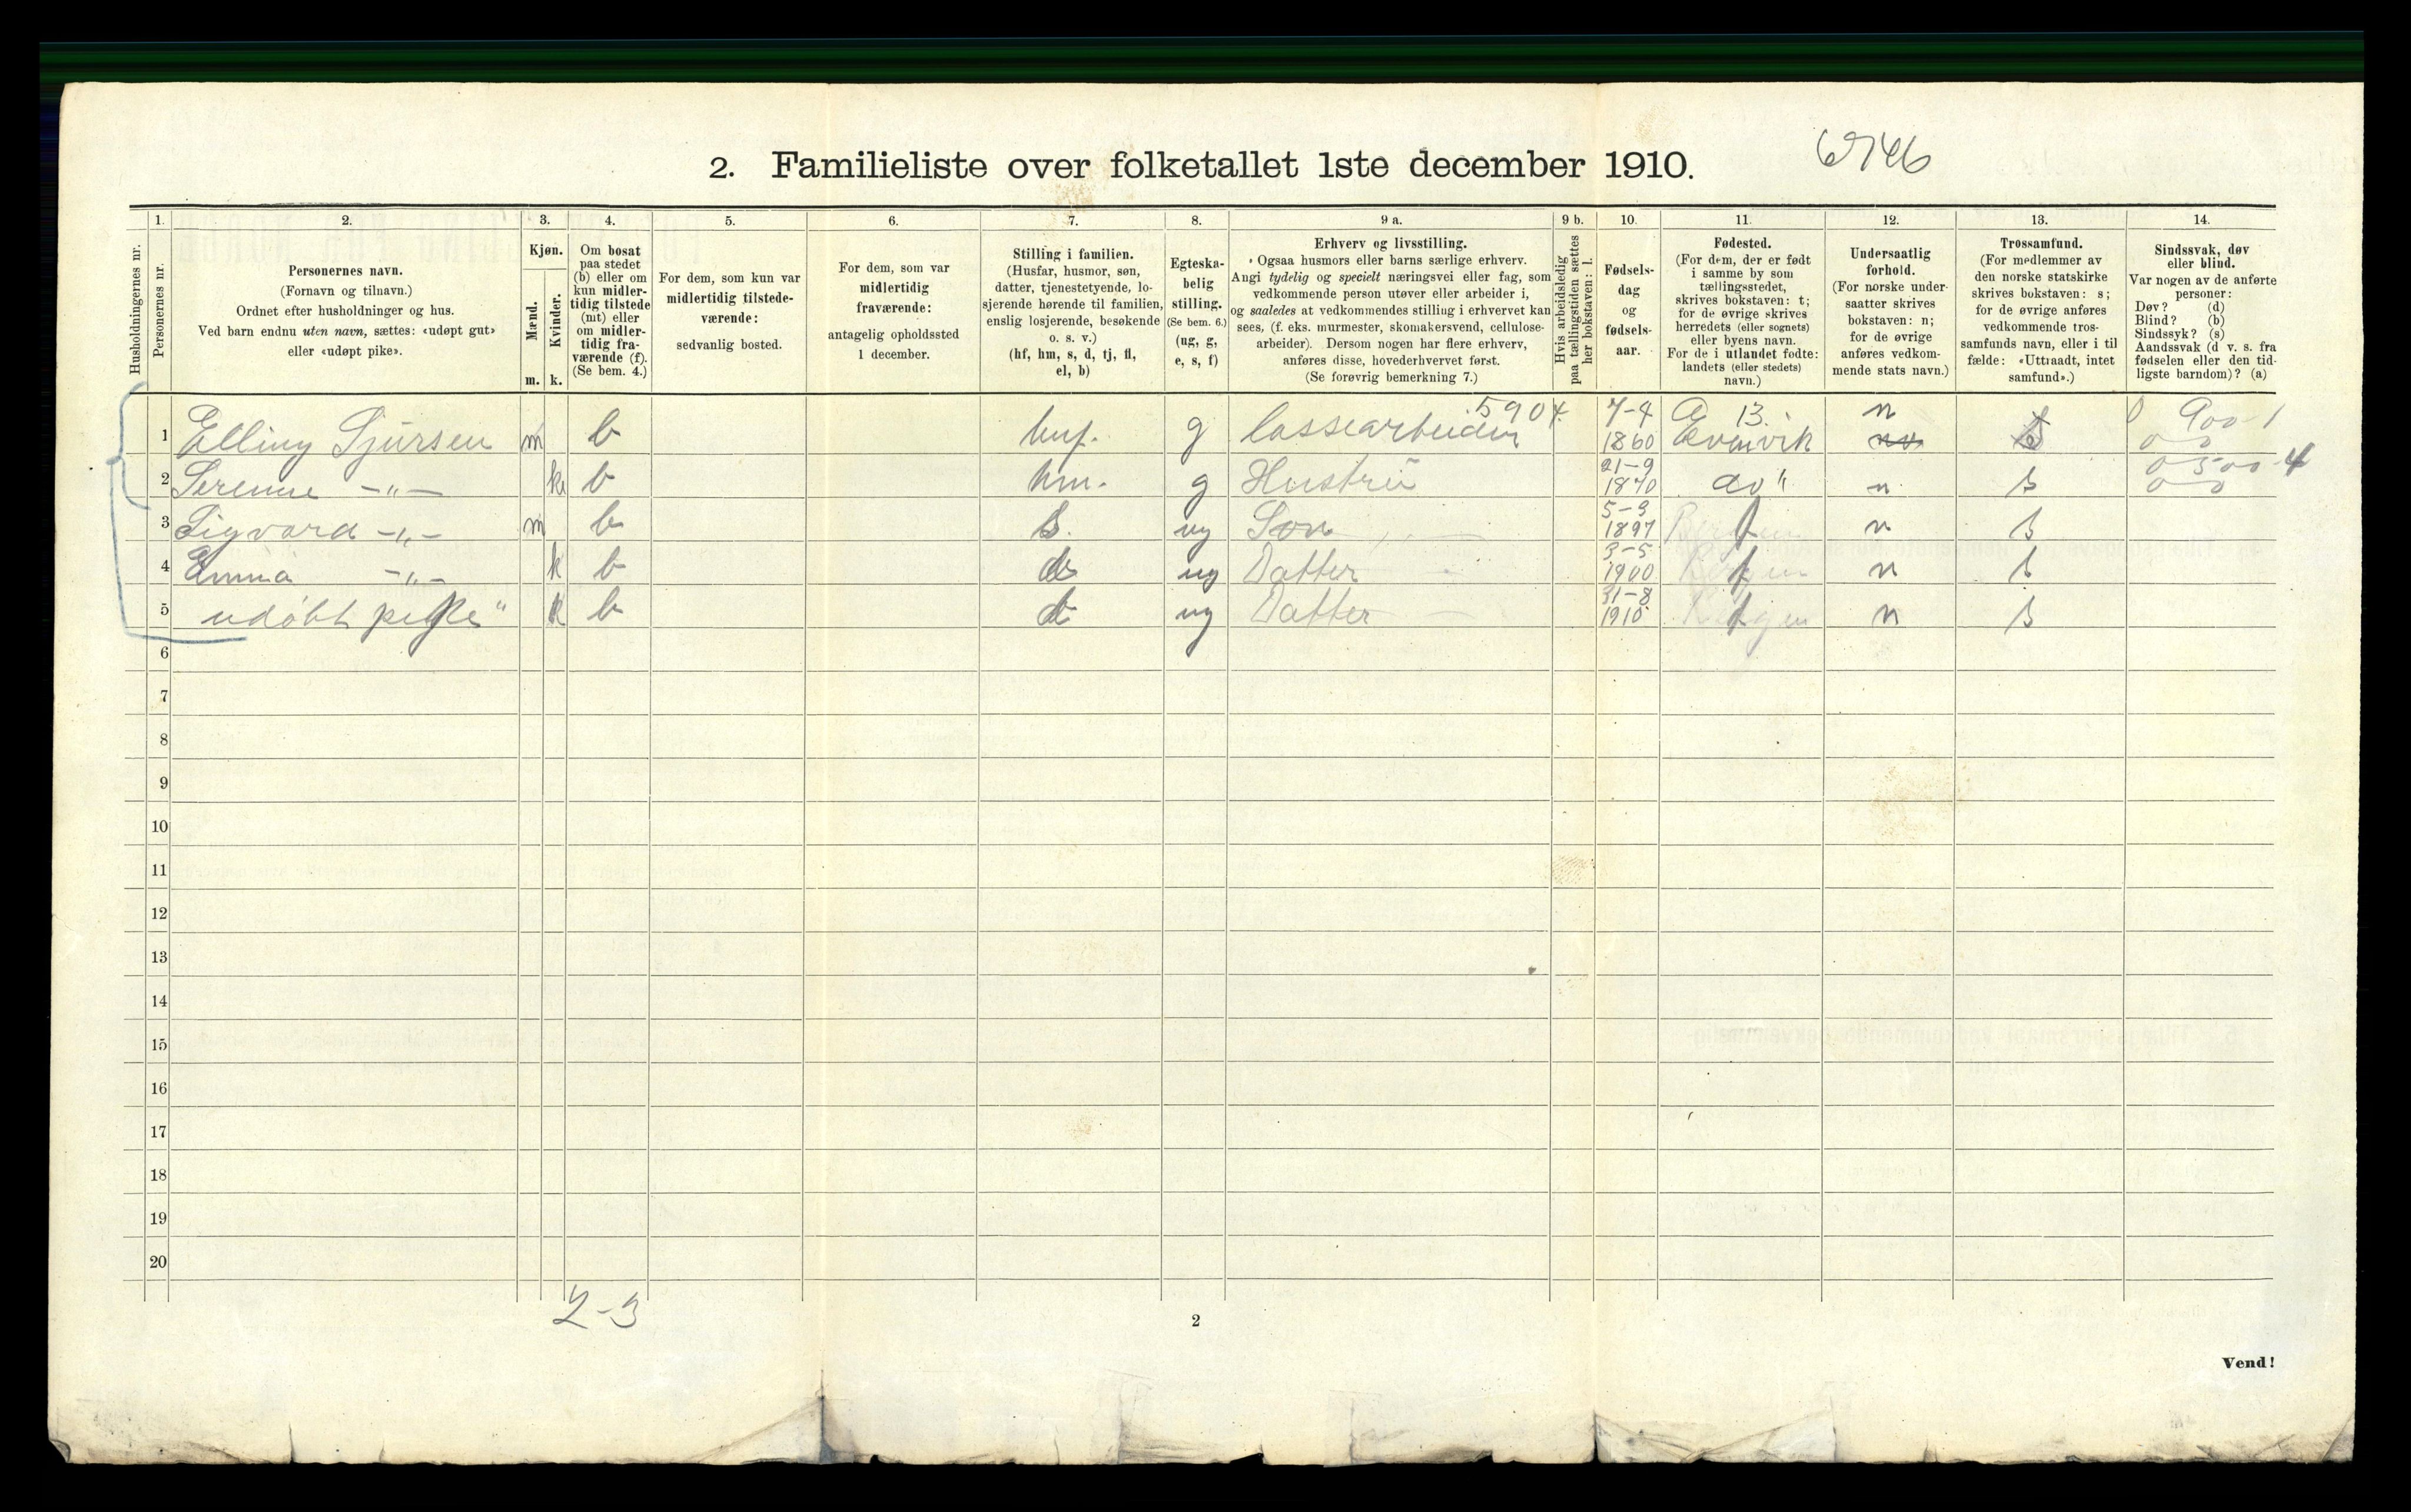 2. Familieliste over folketallet 1ste december 1910.
6746
Husholdningernes nr.
1.
Personernes nr.
2.
Personernes navn.
(Fornavn og tilnavn.)
Ordnet efter husholdninger og hus.
Ved barn endnu uten navn, sættes: «udøpt gut»
eller «udøpt pike».
3.
Kjøn.
Mænd.
m.
Kvinder.
k.
4.
Om bosat
paa stedet
(b) eller om
kun midler-
tidig tilstede
(mt) eller
om midler-
tidig fra-
værende (f).
(Se bem. 4.)
5.
For dem, som kun var
midlertidig tilstede-
værende:
sedvanlig bosted.
6.
For dem, som var
midlertidig
fraværende:
antagelig opholdssted
1 december.
7.
Stilling i familien.
(Husfar, husmor, søn,
datter, tjenestetyende, lo-
sjerende hørende til familien,
enslig losjerende, besøkende
o. s. v.)
(hf, hm, s, d, tj, fl,
el, b)
8.
Egteska-
belig
stilling.
(Se bem. 6.)
(ug, g,
e, s, f)
9 a.
Erhverv og livsstilling.
Ogsaa husmors eller barns særlige erhverv.
Angi tydelig og specielt næringsvei eller fag, som
vedkommende person utøver eller arbeider i,
og saaledes at vedkommendes stilling i erhvervet kan
sees, (f. eks. murmester, skomakersvend, cellulose-
arbeider). Dersom nogen har flere erhverv,
anføres disse, hovederhvervet først.
(Se forøvrig bemerkning 7.)
9 b.
Hvis arbeidsledig
paa tællingstiden sættes
her bokstaven: l.
10.
Fødsels-
dag
og
fødsels-
aar.
11.
Fødested.
(For dem, der er født
i samme by som
tællingsstedet,
skrives bokstaven: t;
for de øvrige skrives
herredets (eller sognets)
eller byens navn.
For de i utlandet fødte:
landets (eller stedets)
navn.)
12.
Undersaatlig
forhold.
(For norske under-
saatter skrives
bokstaven: n;
for de øvrige
anføres vedkom-
mende stats navn.)
13.
Trossamfund.
(For medlemmer av
den norske statskirke
skrives bokstaven: s;
for de øvrige anføres
vedkommende tros-
samfunds navn, eller i til
fælde: «Uttraadt, intet
samfund».)
14.
Sindssvak, døv
eller blind.
Var nogen av de anførte
personer:
Døv? (d)
Blind? (b)
Sindssyk? (s)
Aandssvak (d. v. s. fra
fødselen eller den tid-
ligste barndom)? (a)
5904. 13. 900-1
1 Elling Sjursen m b huf. g Lossearbeider 7-4 1860 Evenvik n s
0 500 4
2 Serenne -"- k b hm. g Hustru 21-9 1870 do " n s
3 Sigvard -"- m b s. ug Søn 5-3 1897 Bergen t n s
4 Emma -"- k b d ug Datter 3-5 1900 Bergen t n s
5 udøbt pike" k b d ug Datter 31-8 1910 Bergen t n s
6
7
8
9
10
11
12
13
14
15
16
17
18
19
20
2-3
2
Vend!